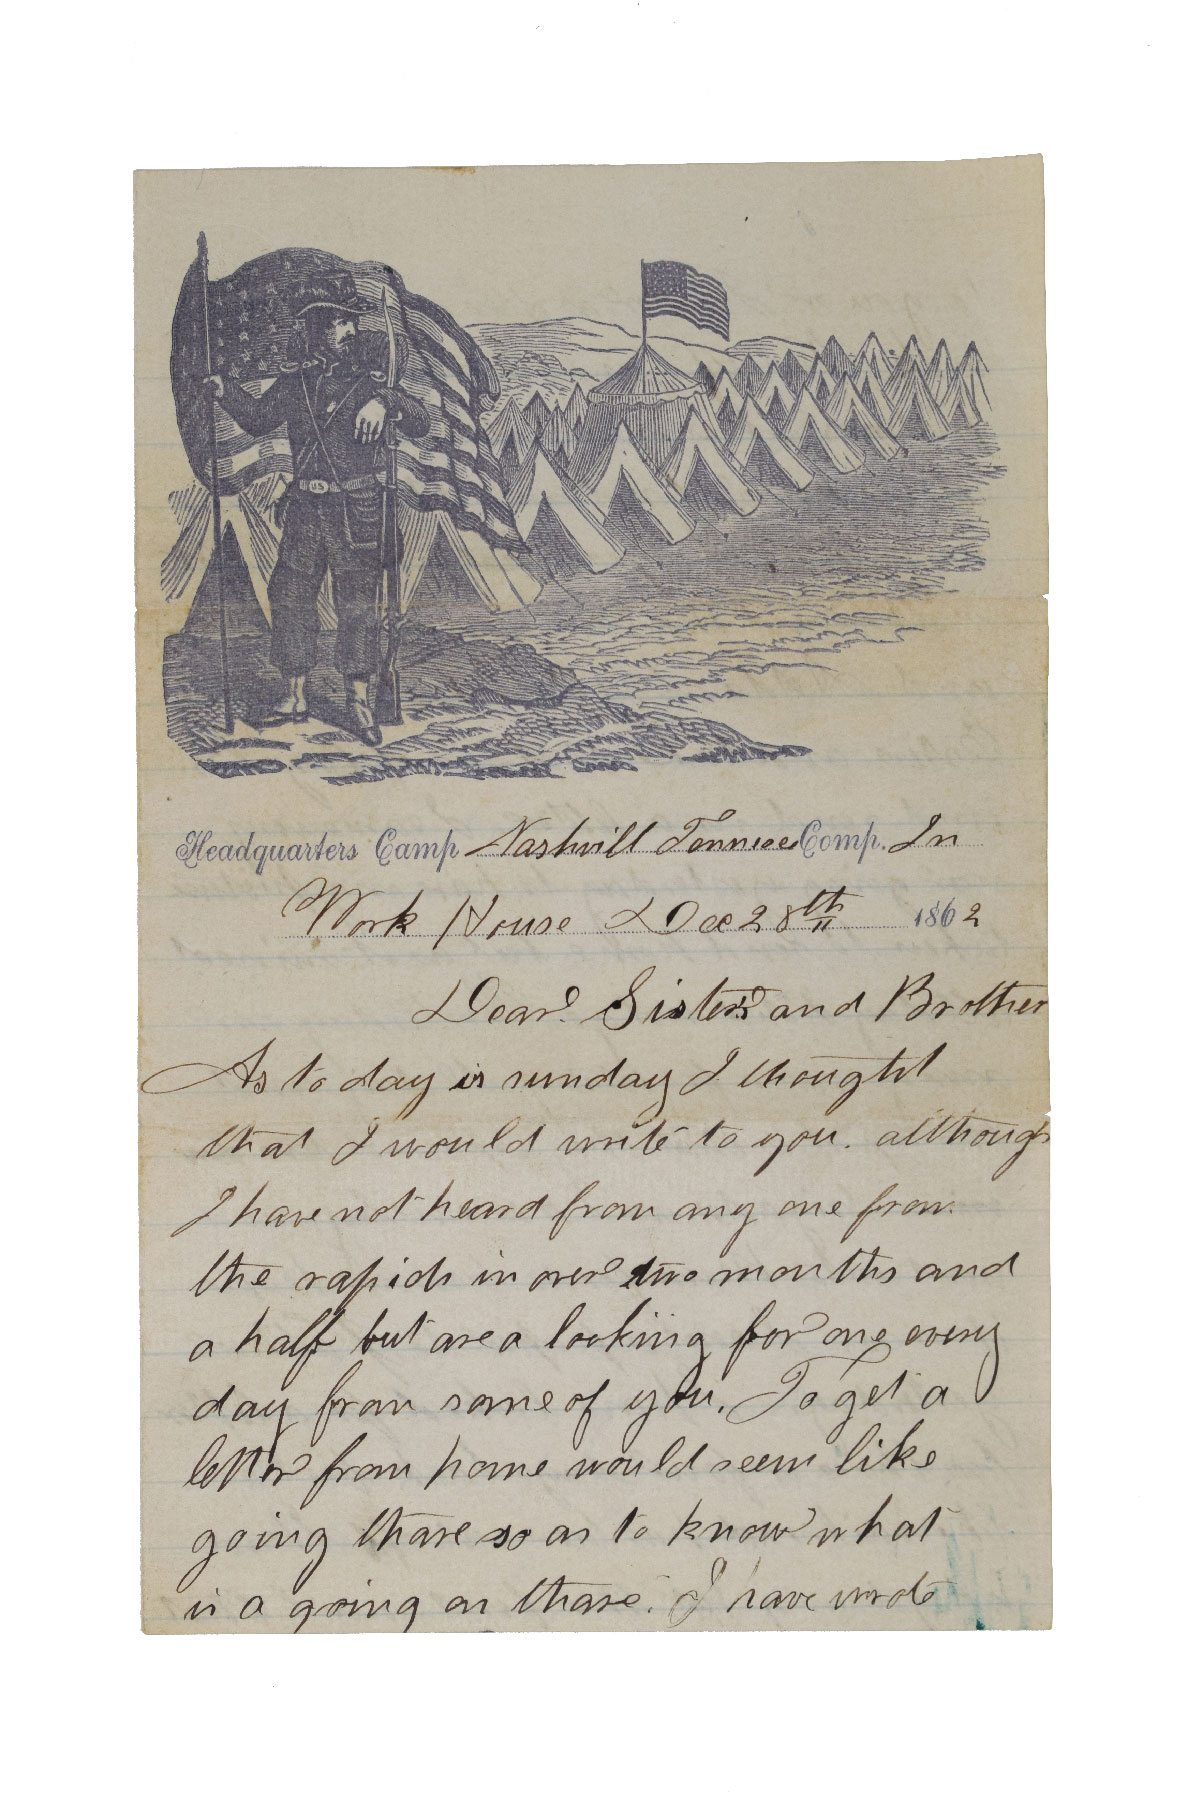 US
Headquarters Camp Nashvill Tennsee Comp. In
Work House Dec 28th 1862
Dear. Sister and Brother
As to day is sunday I thought
that I would write to you. although
I have not heard from any one from
the rapids in over two months and
a half but are a looking for one every
day from some of you. To get a
letter from home would seem like
going thare so as to know what
is a going on thare. I have wrote